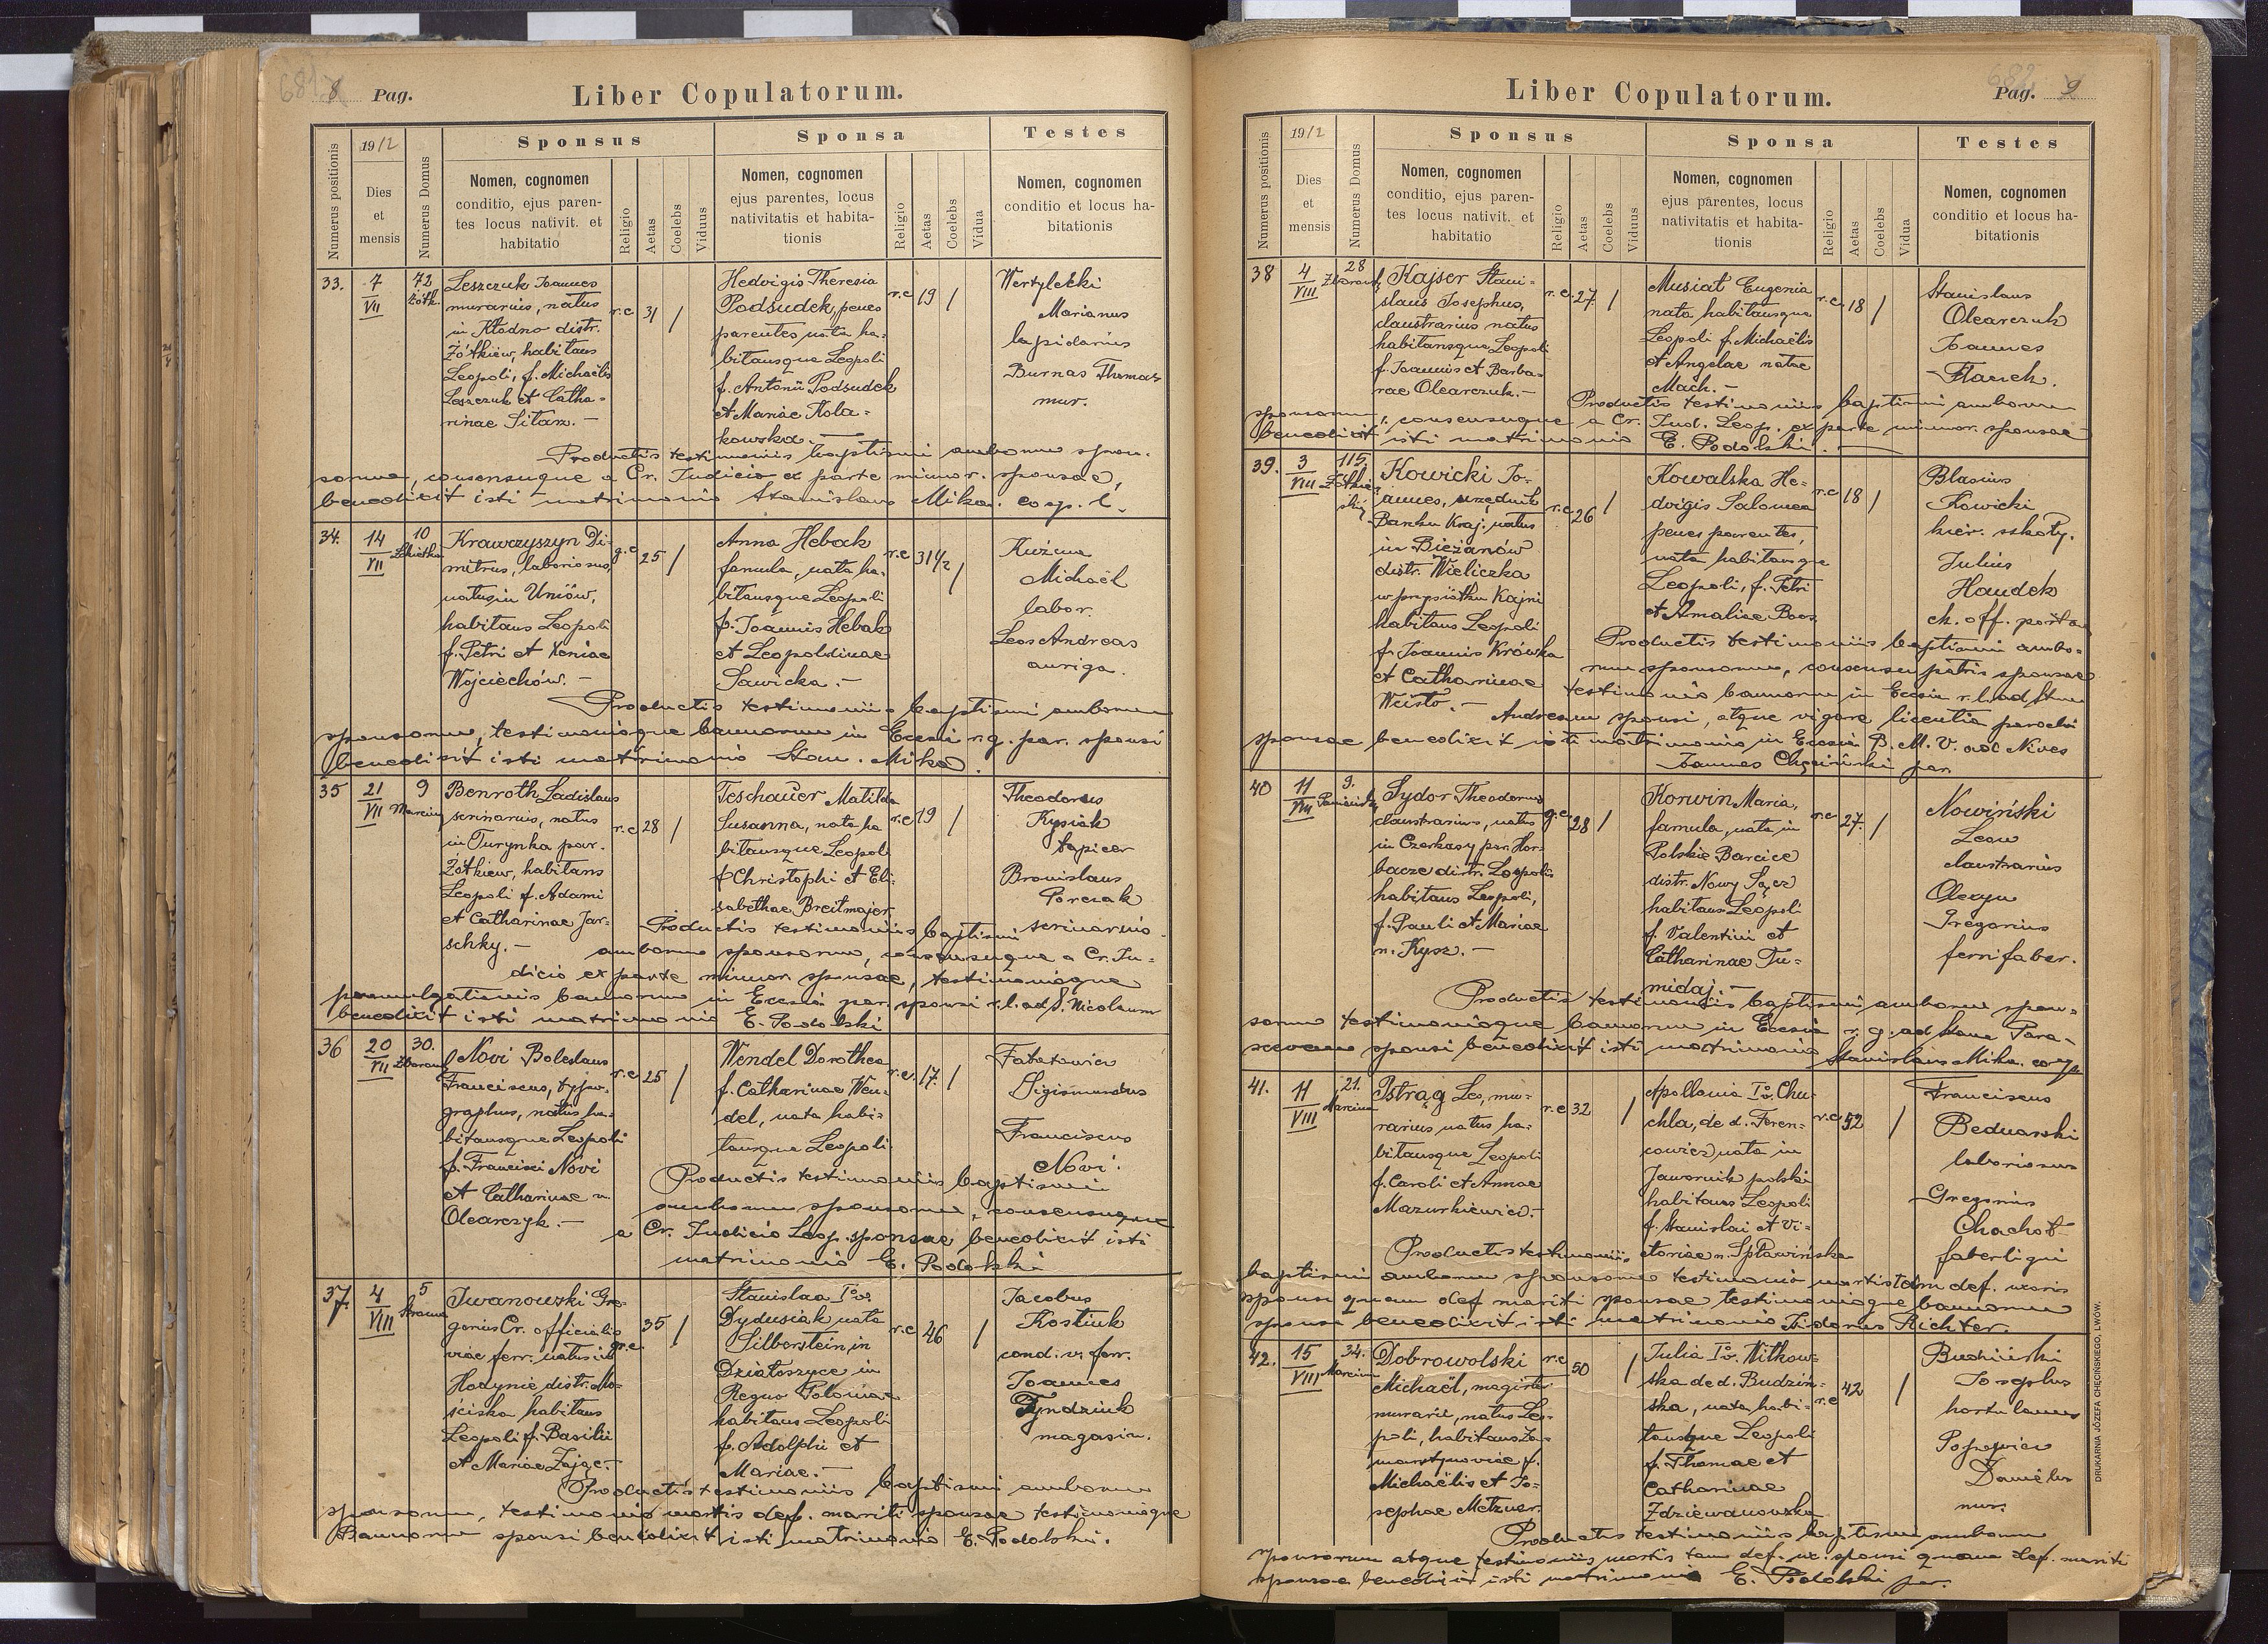 8 Pag.
Liber Copulatorum.
Numerus positionis
1912
Dies
et
mensis
Numerus Domus
Sponsus
Nomen, cognomen
conditio, ejus paren-
tes locus nativit. et
habitatio
Religio
Aetas
Coelebs
Viduus
Sponsa
Nomen, cognomen
ejus parentes, locus
nativitatis et habita-
tionis
Religio
Aetas
Coelebs
Vidua
Testes
Nomen, cognomen
conditio et locus ha-
bitationis
33.
7
VII
72
Żółk.
Leszczuk Joannes
murarius, natus
in Kłodno distr.
Żółkiew, habitans
Leopoli, f. Michaëlis
Leszczuk et Catha-
rinae Sitarz. -
r.c
31
/
Hedvigis Theresia
Podsudek, penes
parentes nata ha-
bitansque Leopoli
f. Antonii Podsudek
et Mariae Kola-
kowska. -
r.c
19
/
Wertylecki
Marianus
lapidarius
Burnas Thomas
mur.
Productis testimoniis baptismi amborum spon-
sorum, consensuque a Cr. Judicio ex parte minor. sponsae,
benedixit isti matrimonio Stanislaus Mika. coop. l.
34.
14
VII
10
Krawczyszyn Di-
mitrus, laboriosus,
natus in Uniów,
habitans Leopoli
f. Petri et Xeniae
Wojciechów. -
g.c
25
/
Anna Hebak
famula, nata ha-
bitansque Leopoli
f. Joannis Hebak
et Leopoldinae
Sawicka. -
r.c
31½
/
Kuźma
Michaël
labor.
Leos Andreas
auriga.
Productis testimoniis baptismi amborum
sponsorum, testimonioque bannorum in Eccsia r. g. par. sponsi
benedixit isti matrimonio Stan. Mika.
35
21
VII
9
Marcina
Benroth Ladislaus
serinarius, natus
in Turynka par.
Żółkiew, habitans
Leopoli f. Adami
et Catharinae Jar-
schky. -
r.c
28
/
Teschauer Matilda
Susanna, nata ha
bitansque Leopoli
f. Christophi et Eli-
sabethae Breitmajer
r.c
19
/
Theodorus
Kysiak
tapicer
Bronislaus
Porczak
serinarius.
Productis testimoniis baptismi
amborum sponsorum, consensuque a Cr. Ju-
dicio ex parte minor. sponsae, testimonioque
promulgationis bannorum in Eccsia par. sponsi r. l. ad S. Nicolaum
benedixit isti matrimonio E. Podolski
36
20
VII
30.
Novi Boleslaus
Franciscus, typo-
graphus, natus ha-
bitansque Leopoli
f. Francisci Novi
et Catharinae n.
Olearczyk. -
r.c
25
/
Wendel Dorothea
f. Catharinae Wen-
del, nata habi-
tansque Leopoli.
r.c.
17.
/
Sigismundus
Franciscus
Novi.
Productis testimoniis baptismi
amborum sponsorum, consensuque
a Cr. Judicio Leop. sponsae benedixit isti
matrimonio E. Podolski
37.
4
VIII
5
Iwanowski Gre-
gorius Cr. officialis
viae ferr. natus in
Hodynie distr. Mo-
ściska habitans
Leopoli f. Basilii
et Mariae Zając. -
gr.c.
35
/
Stanislaa Iº v.
Dydusiak nata
Silberstein in
Działoszyce in
Regno Poloniae
habitans Leopoli
f. Adolphi et
Mariae. -
r.c
46
/
Jacobus
Kostiuk
cond. v. ferr.
Joannes
Tyndziuk
magasin.
Productis testimoniis baptismi amborum
sponsorum, testimonio mortis def. mariti sponsae testimonioque
Bannorum sponsi benedixit isti matrimonio E. Podolski.
Liber Copulatorum.
Pag. 9
Numerus positionis
1912
Dies
et
mensis
Numerus Domus
Sponsus
Nomen, cognomen
conditio, ejus paren-
tes locus nativit. et
habitatio
Religio
Aetas
Coelebs
Viduus
Sponsa
Nomen, cognomen
ejus parentes, locus
nativitatis et habita-
tionis
Religio
Aetas
Coelebs
Vidua
Testes
Nomen, cognomen
conditio et locus ha-
bitationis
38
4
VIII
28
Kajser Stani-
slaus Josephus,
claustrarius natus
habitansque Leopoli
f. Joannis et Barba-
rae Olearczuk. -
r.c.
27.
/
Musiat Eugenia
nata habitansque
Leopoli f. Michaëlis
et Angelae natae
Mach. -
r.c.
18
/
Stanislaus
Olearczuk
Joannes
Productis testimoniis baptismi amborum
sponsorum, consensuque a Cr. Jud. Leop. ex parte minor. sponsae
benedixit isti matrimonio E. Podolski.
39.
3
VIII
115
Żółkiew
skiej
Kowicki Jo-
annes, urzędnik
Banku Kraj. natus
in Bieżanów
distr. Wieliczka
w przysiółku Kajni
habitans Leopoli
f. Joannis Krówka
et Catharinae
Weisło. -
r.c.
26
/
Kowalska He-
dvigis Salomea
penes parentes,
nata habitansque
Leopoli, f. Petri
et Amaliae Boos.
r.c
18
/
Blasius
Kowicki
kier. szkoły.
Julius
Haudek
ch. off. posta
Productis testimoniis baptismi ambo-
rum sponsorum, consensu patris sponsae
testimonio bannorum in Eccsia r. l. ad Stum
Andream sponsi, atque vigore licentia parochi
sponsae benedixit isti matrimonio in Eccsia B. M. V. ad Nives
Joannes Chęciński par.
40
11
VIII
9.
Sydor Theodorus
claustrarius, natus
in Czerkasy par. Hor-
bacze distr. Leopolis
habitans Leopoli,
f. Pauli et Mariae
n. Kysz. -
g.c.
28
/
Korwin Maria,
famula, nata in
Polskie Barcice
distr. Nowy Sącz
habitans Leopoli
f. Valentini et
Catharinae Tu-
midaj. -
r.c
27.
/
Nowiński
Leon
claustrarius
Olexyn
Gregorius
ferrifaber.
Productis testimoniis baptismi amborum spon-
sorum testimonioque bannorum in Eccsia r. g. ad Stam Para-
scevam sponsi benedixit isti matrimonio Stanislaus Mika. coop.
41.
11
VIII
21.
Marcina
Pstrąg Leo, mu-
rarius natus ha-
bitansque Leopoli
f. Caroli et Annae
Mazurkiewicz. -
r.c
32
/
Apollonia Iº v. Chu-
chla, de d. Feren-
cowicz nata in
Jawornik polski
habitans Leopoli
f. Stanislai et Vi-
ctoriae n. Spławińska
r.c.
52
/
Franciscus
Bednarski
laboriosus
Gregorius
Chachoł
faber ligni
Productis testimoniis
baptismi amborum sponsorum testimonio mortis tam def. uxoris
sponsi quam def. mariti sponsae testimonioque bannorum
sponsi benedixit isti matrimonio Isidorus Richter.
42.
15
VIII
34.
Marcina
Dobrowolski
Michaël, magister
murarii, natus Leo-
poli, habitans Za-
marstynoviae f.
Michaëlis et Jo-
sephae Metzner.
r.c
50
/
Julia Iº v. Witkow-
ska de d. Budziń-
ska, nata habi-
tansque Leopoli
f. Thomae et
Catharinae
Zdziewanowska
r.c
42
/
Budziński
Josephus
hortulanus
Popowicz
mur.
Productis testimoniis baptismi amborum
sponsorum atque testimoniis mortis tam def. ux. sponsi quam def. mariti
sponsae benedixit isti matrimonio E. Podolski par.
DRUKARNIA JÓZEFA CHĘCIŃSKIEGO, LWÓW.